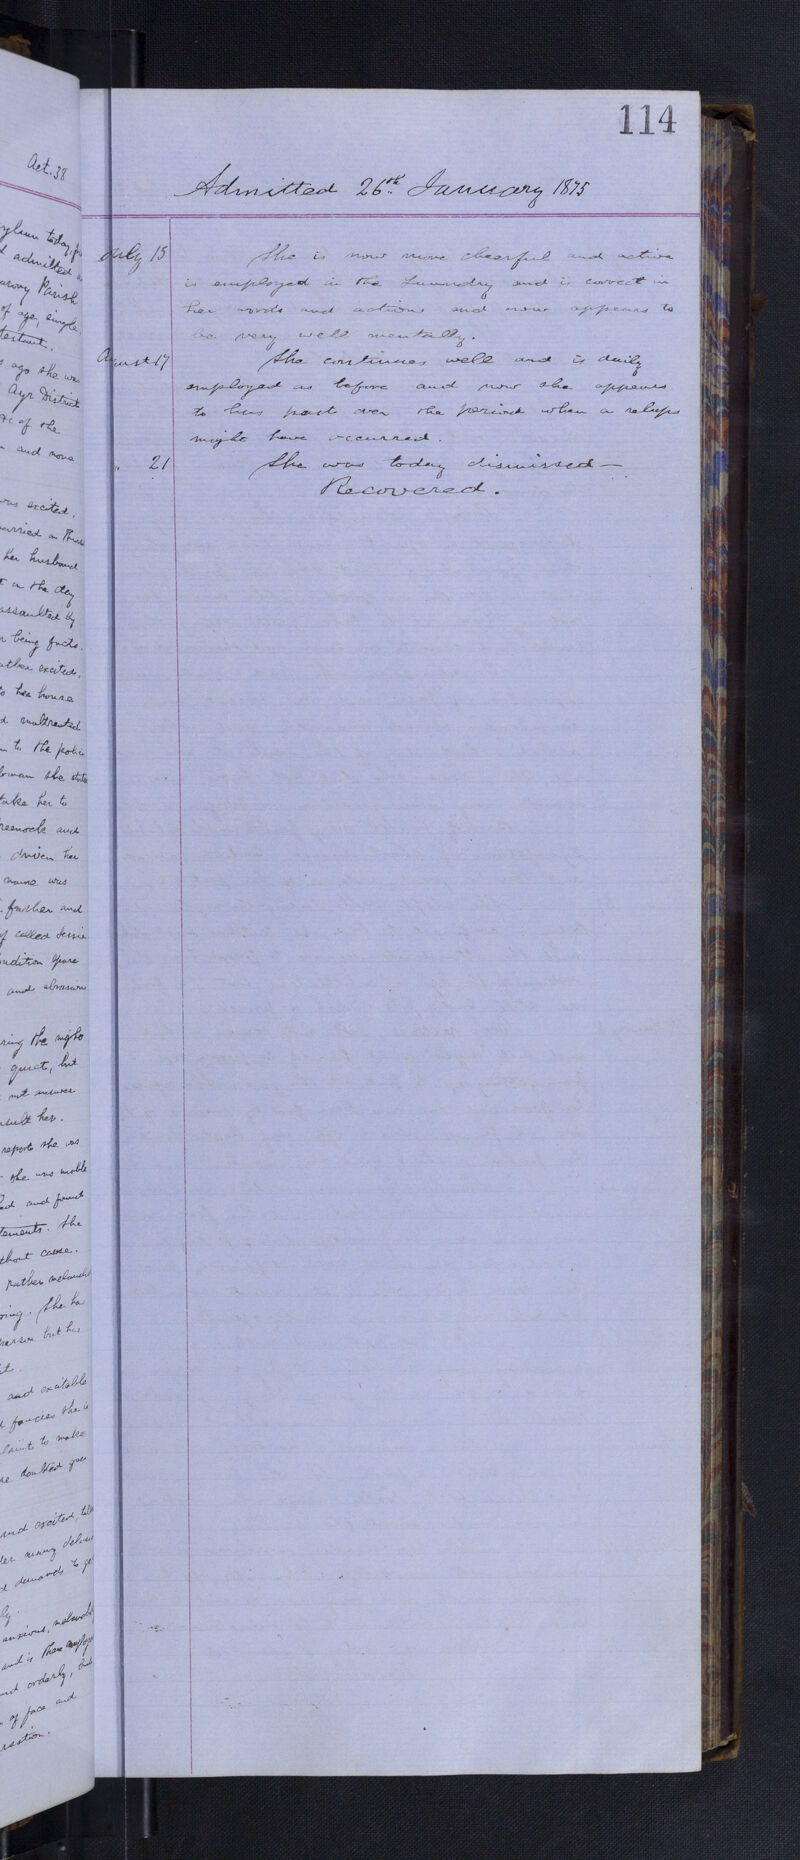 114
Aet. 38
Admitted 26th January 1875
July 15 She is now more cheerful and active
is employed in the Laundry and is correct in
her words and actions and now appears to
be very well mentally.
August 17 She continues well and is daily
employed as before and now she appears
to have past over the period when a relapse
might have occurred.
" 21 She was today dismissed —
Recovered.
asylum today
admitted
Parish
of age, single
ago she was
Ayr District
of the
and now
was excited.
married on
her husband
on the day
assaulted by
being facts.
rather excited.
to her house
maltreated
to the police
woman she
take her to
Greenock and
driven her
name was
further and
called Jessie
condition
and abrasion
during the night
quiet, but
not answer
insult her.
report she was
she was unable
and found
statements. She
without cause.
rather
She has
person but has
and excitable
fancies she is
to make
doubted
and excited,
many
demands to
anxious,
and is
and orderly,
of face and